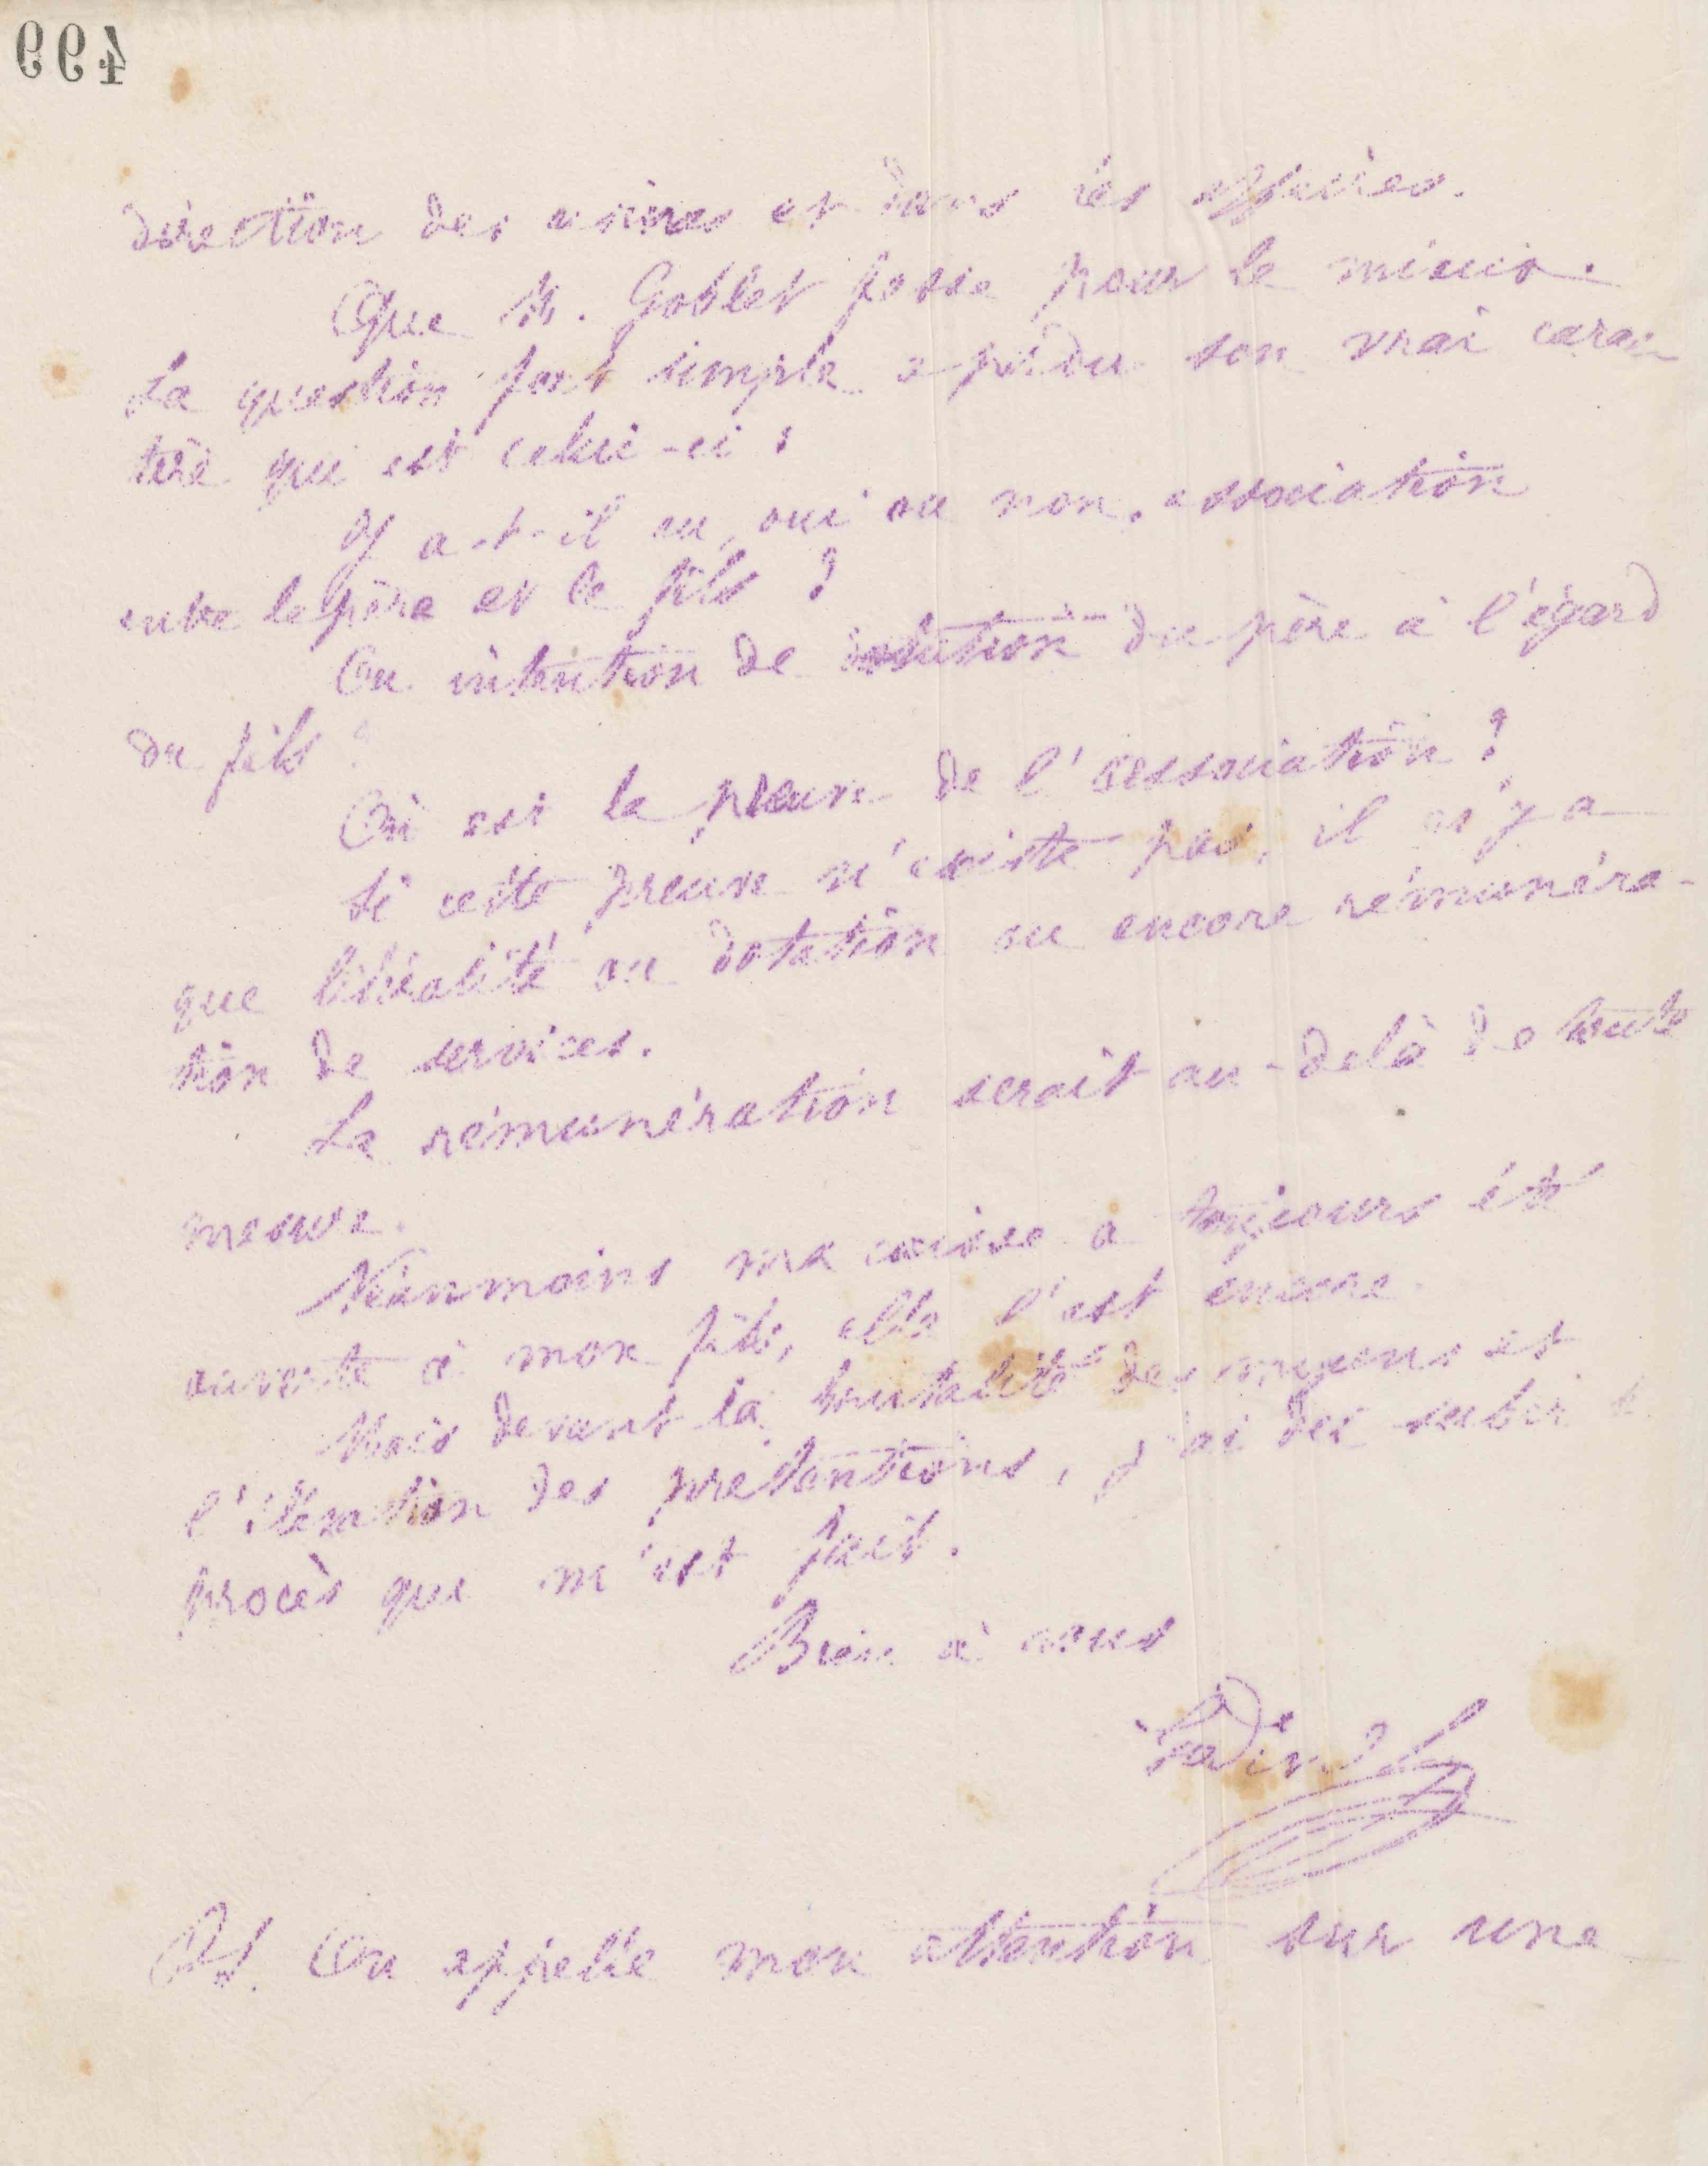 664
direction des usines et dans les affaires.
Que M. Goblet fasse pour le mieux.
La question fort simple a perdu son vrai carac
tère qui est celui-ci :
Y a-t-il eu, oui ou non, association
entre le père et le fils ?
Ou intention de dotation du père à l'égard
du fils ?
Où est la preuve de l'association ?
Si cette preuve n'existe pas, il n'y a
que libéralité ou dotation ou encore rémunéra-
tion de services.
La rémunération serait au-delà de toute
mesure.
Néanmoins ma caisse a toujours été
ouverte à mon fils, elle l'est encore.
Mais devant la brutalité des moyens et
l'élévation des prétentions, j'ai dû subir le
procès qui m'est fait.
Bien à vous
Godin
Ps. On appelle mon attention sur une